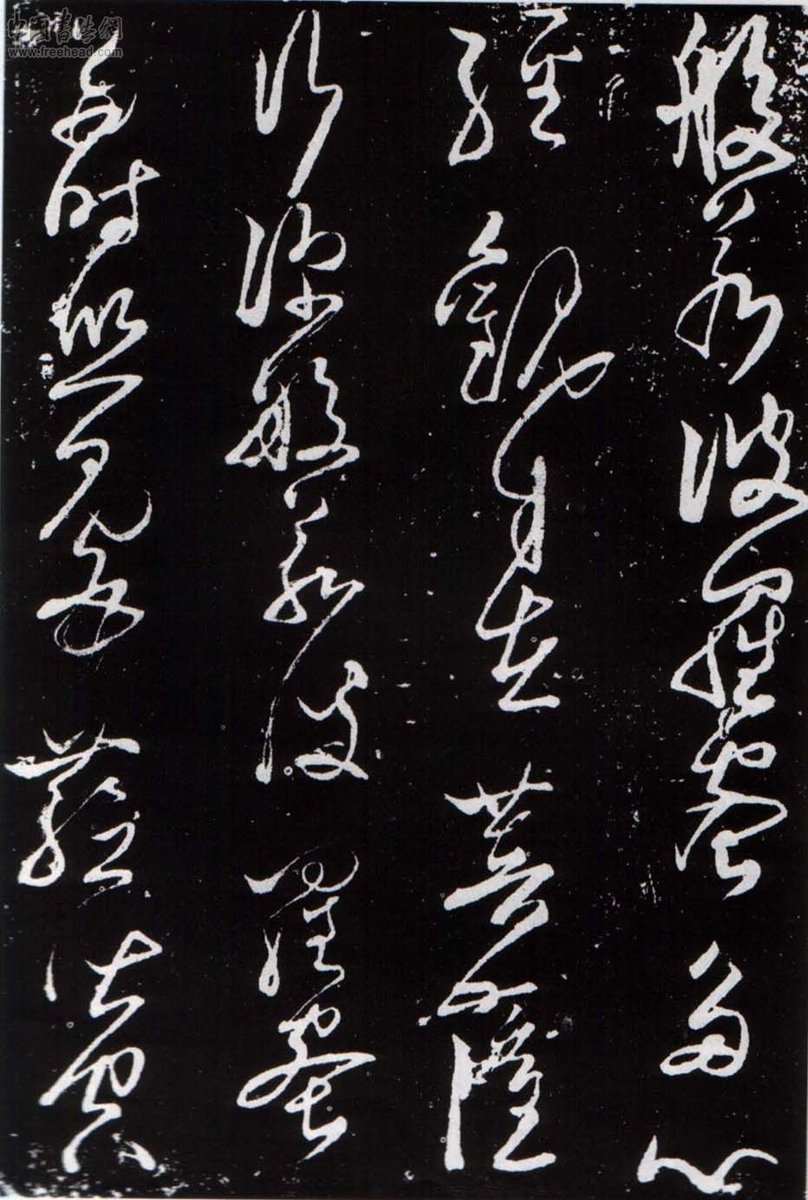 般若波羅蜜多心
經觀自在菩薩
行深般若波羅蜜
多時照見五蘊皆空
中國書法網
www.freehead.com